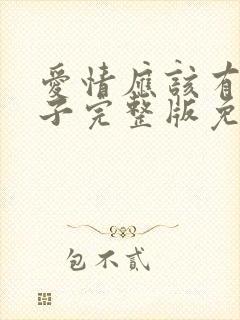 愛情應該有
子完整版免
包不貳